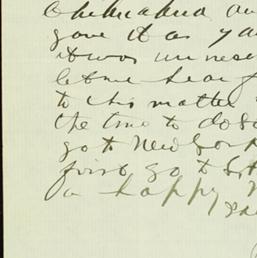 Chihuahua an
gave it as you
it was unnece
let me hear f
to this matter
the time to do so
go to New York
first go to St
a happy N